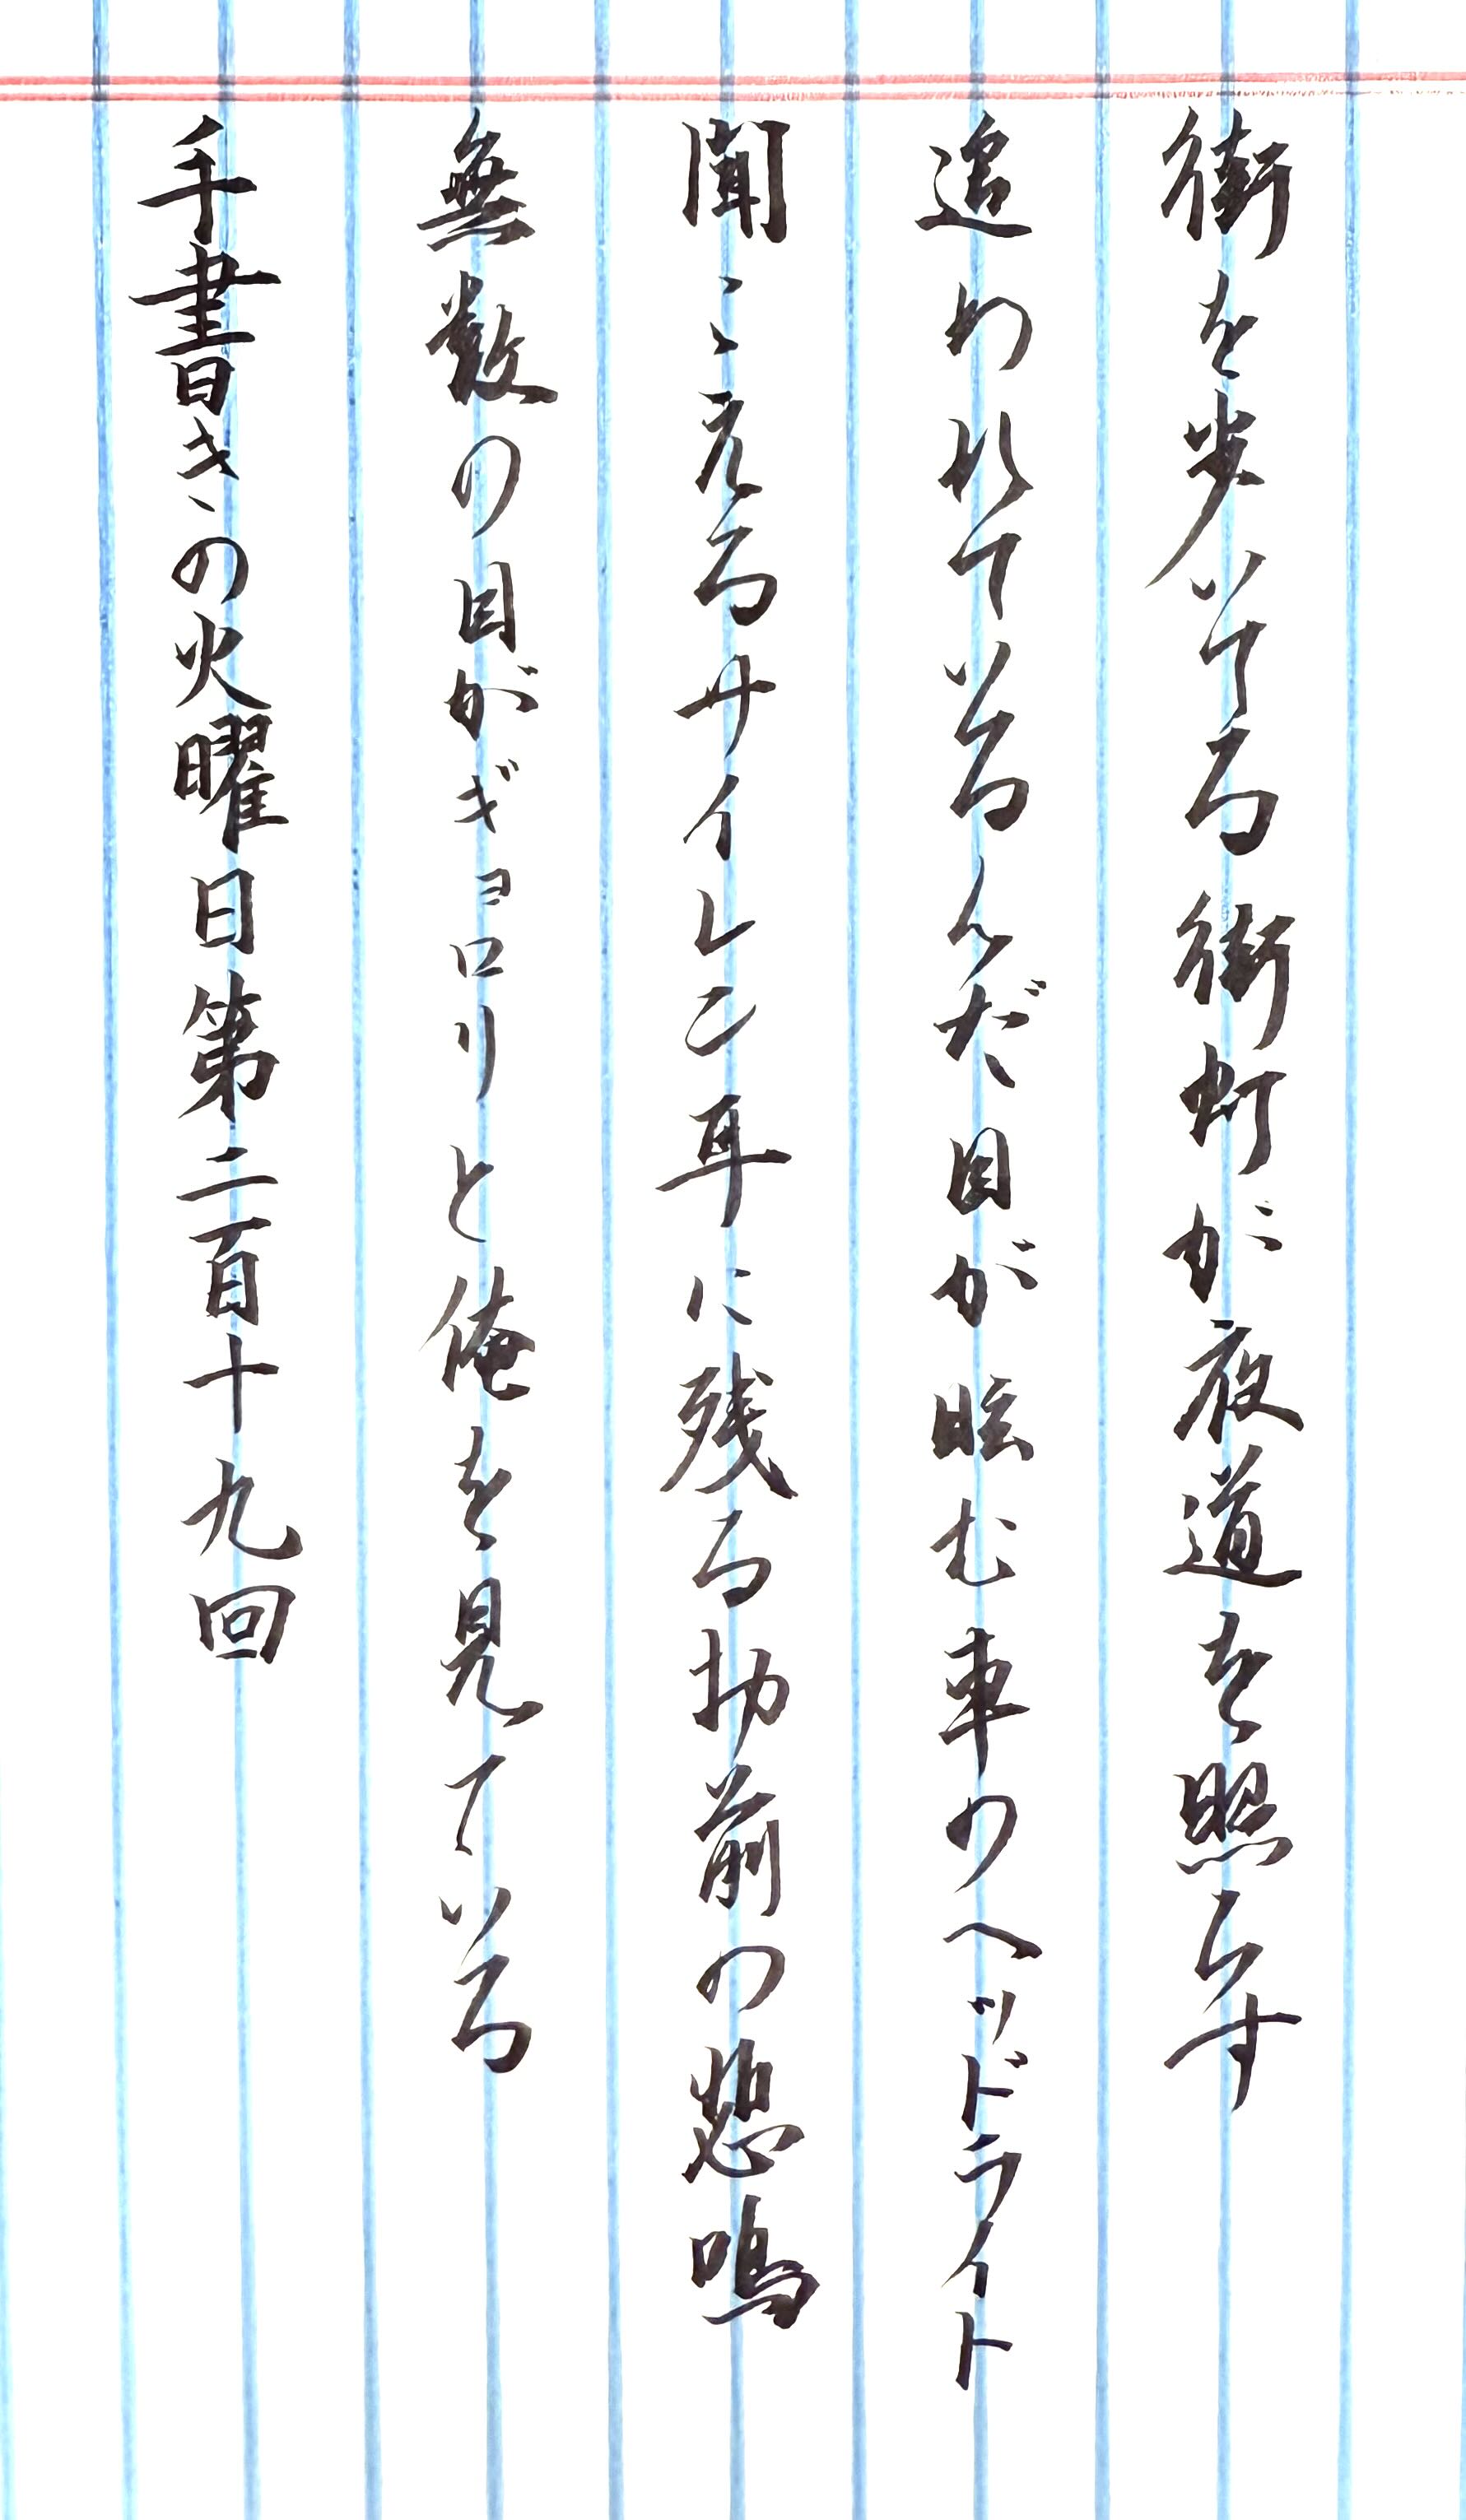 街を歩いてる街灯が夜道を照らす
追われているんだ目が眩む車のヘッドライト
聞こえるサイレン耳に残る前の悲鳴
無数の目がギョロリと俺を見ている
手書きの火曜日第二百十九回